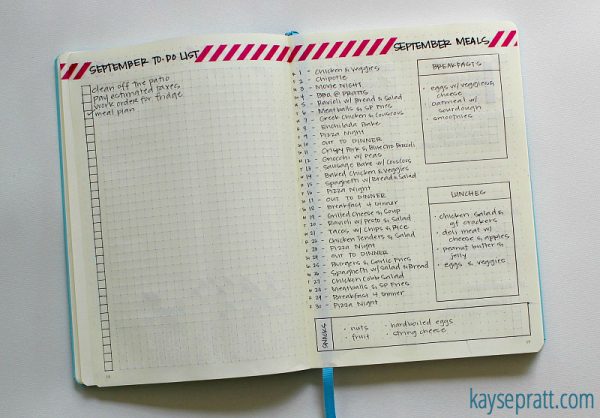 SEPTEMBER TO-DO LIST
clean off the patio
pay estimated taxes
work order for fridge
meal plan
SEPTEMBER MEALS
1 - Chicken & Veggies
2 - Chipotle
3 - MOVIE NIGHT
4 - BBQ @ PRATTS
5 - Ravioli w/ Bread & Salad
6 - Meatballs & SP Fries
7 - Greek Chicken & Couscous
8 - Enchilada Bake
9 - Pizza Night
10 - OUT TO DINNER
11 - Crispy Pork & Broccoli
12 - Gnocchi w/ Peas
13 - Sausage Bake w/ Couscous
14 - Baked Chicken & Veggies
15 - Spaghetti w/ Bread & Salad
16 - Pizza Night
17 - OUT TO DINNER
18 - Breakfast 4 Dinner
19 - Grilled Cheese & Soup
20 - Ravioli w/ Pesto & Salad
21 - Tacos w/ Chips & Rice
Chicken Tenders & Salad
Pizza Night
OUT TO DINNER
25 - Burgers & Garlic Fries
26 - Spaghetti w/ Salad & Bread
27 - Chicken Cobb Salad
28 - Meatballs & SP Fries
29 - Breakfast 4 Dinner
30 - Pizza Night
BREAKFASTS
• eggs w/ veggies &
cheese
• oatmeal w/
sourdough
• smoothies
LUNCHES
• chicken salad &
gf crackers
• deli meat w/
cheese & apples
• peanut butter &
jelly
• eggs & veggies
SNACKS
• nuts • hardboiled eggs
• fruit • string cheese
kaysepratt.com